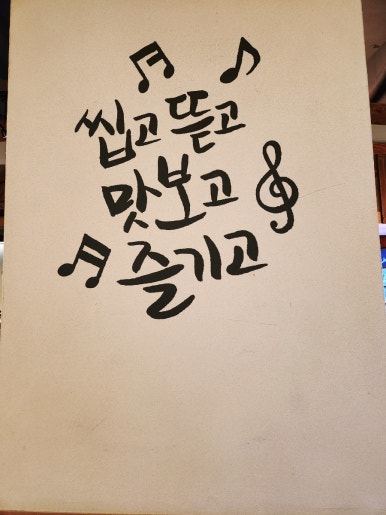 씹고 뜯고
맛보고
즐기고